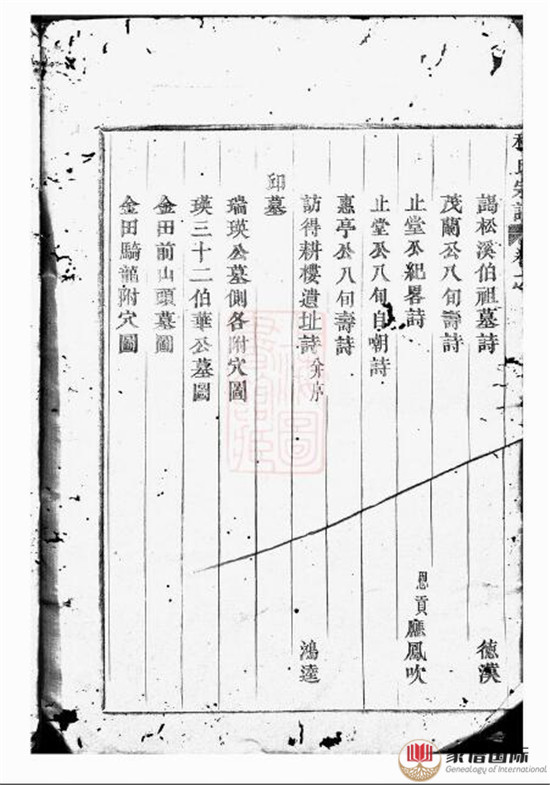 謁松溪伯祖墓詩 德漢
茂蘭公八旬壽詩
止堂公紀畧詩 恩貢 廳鳳吹
止堂公八旬自嘲詩
惠亭公八旬壽詩
訪得耕樓遺址詩 并序 鴻逵
邱墓
瑞瑛公墓側各附穴圖
瑛三十二伯華公墓圖
金田前山頭墓圖
金田騎龍附穴圖
家谱国际
Genealogy of International